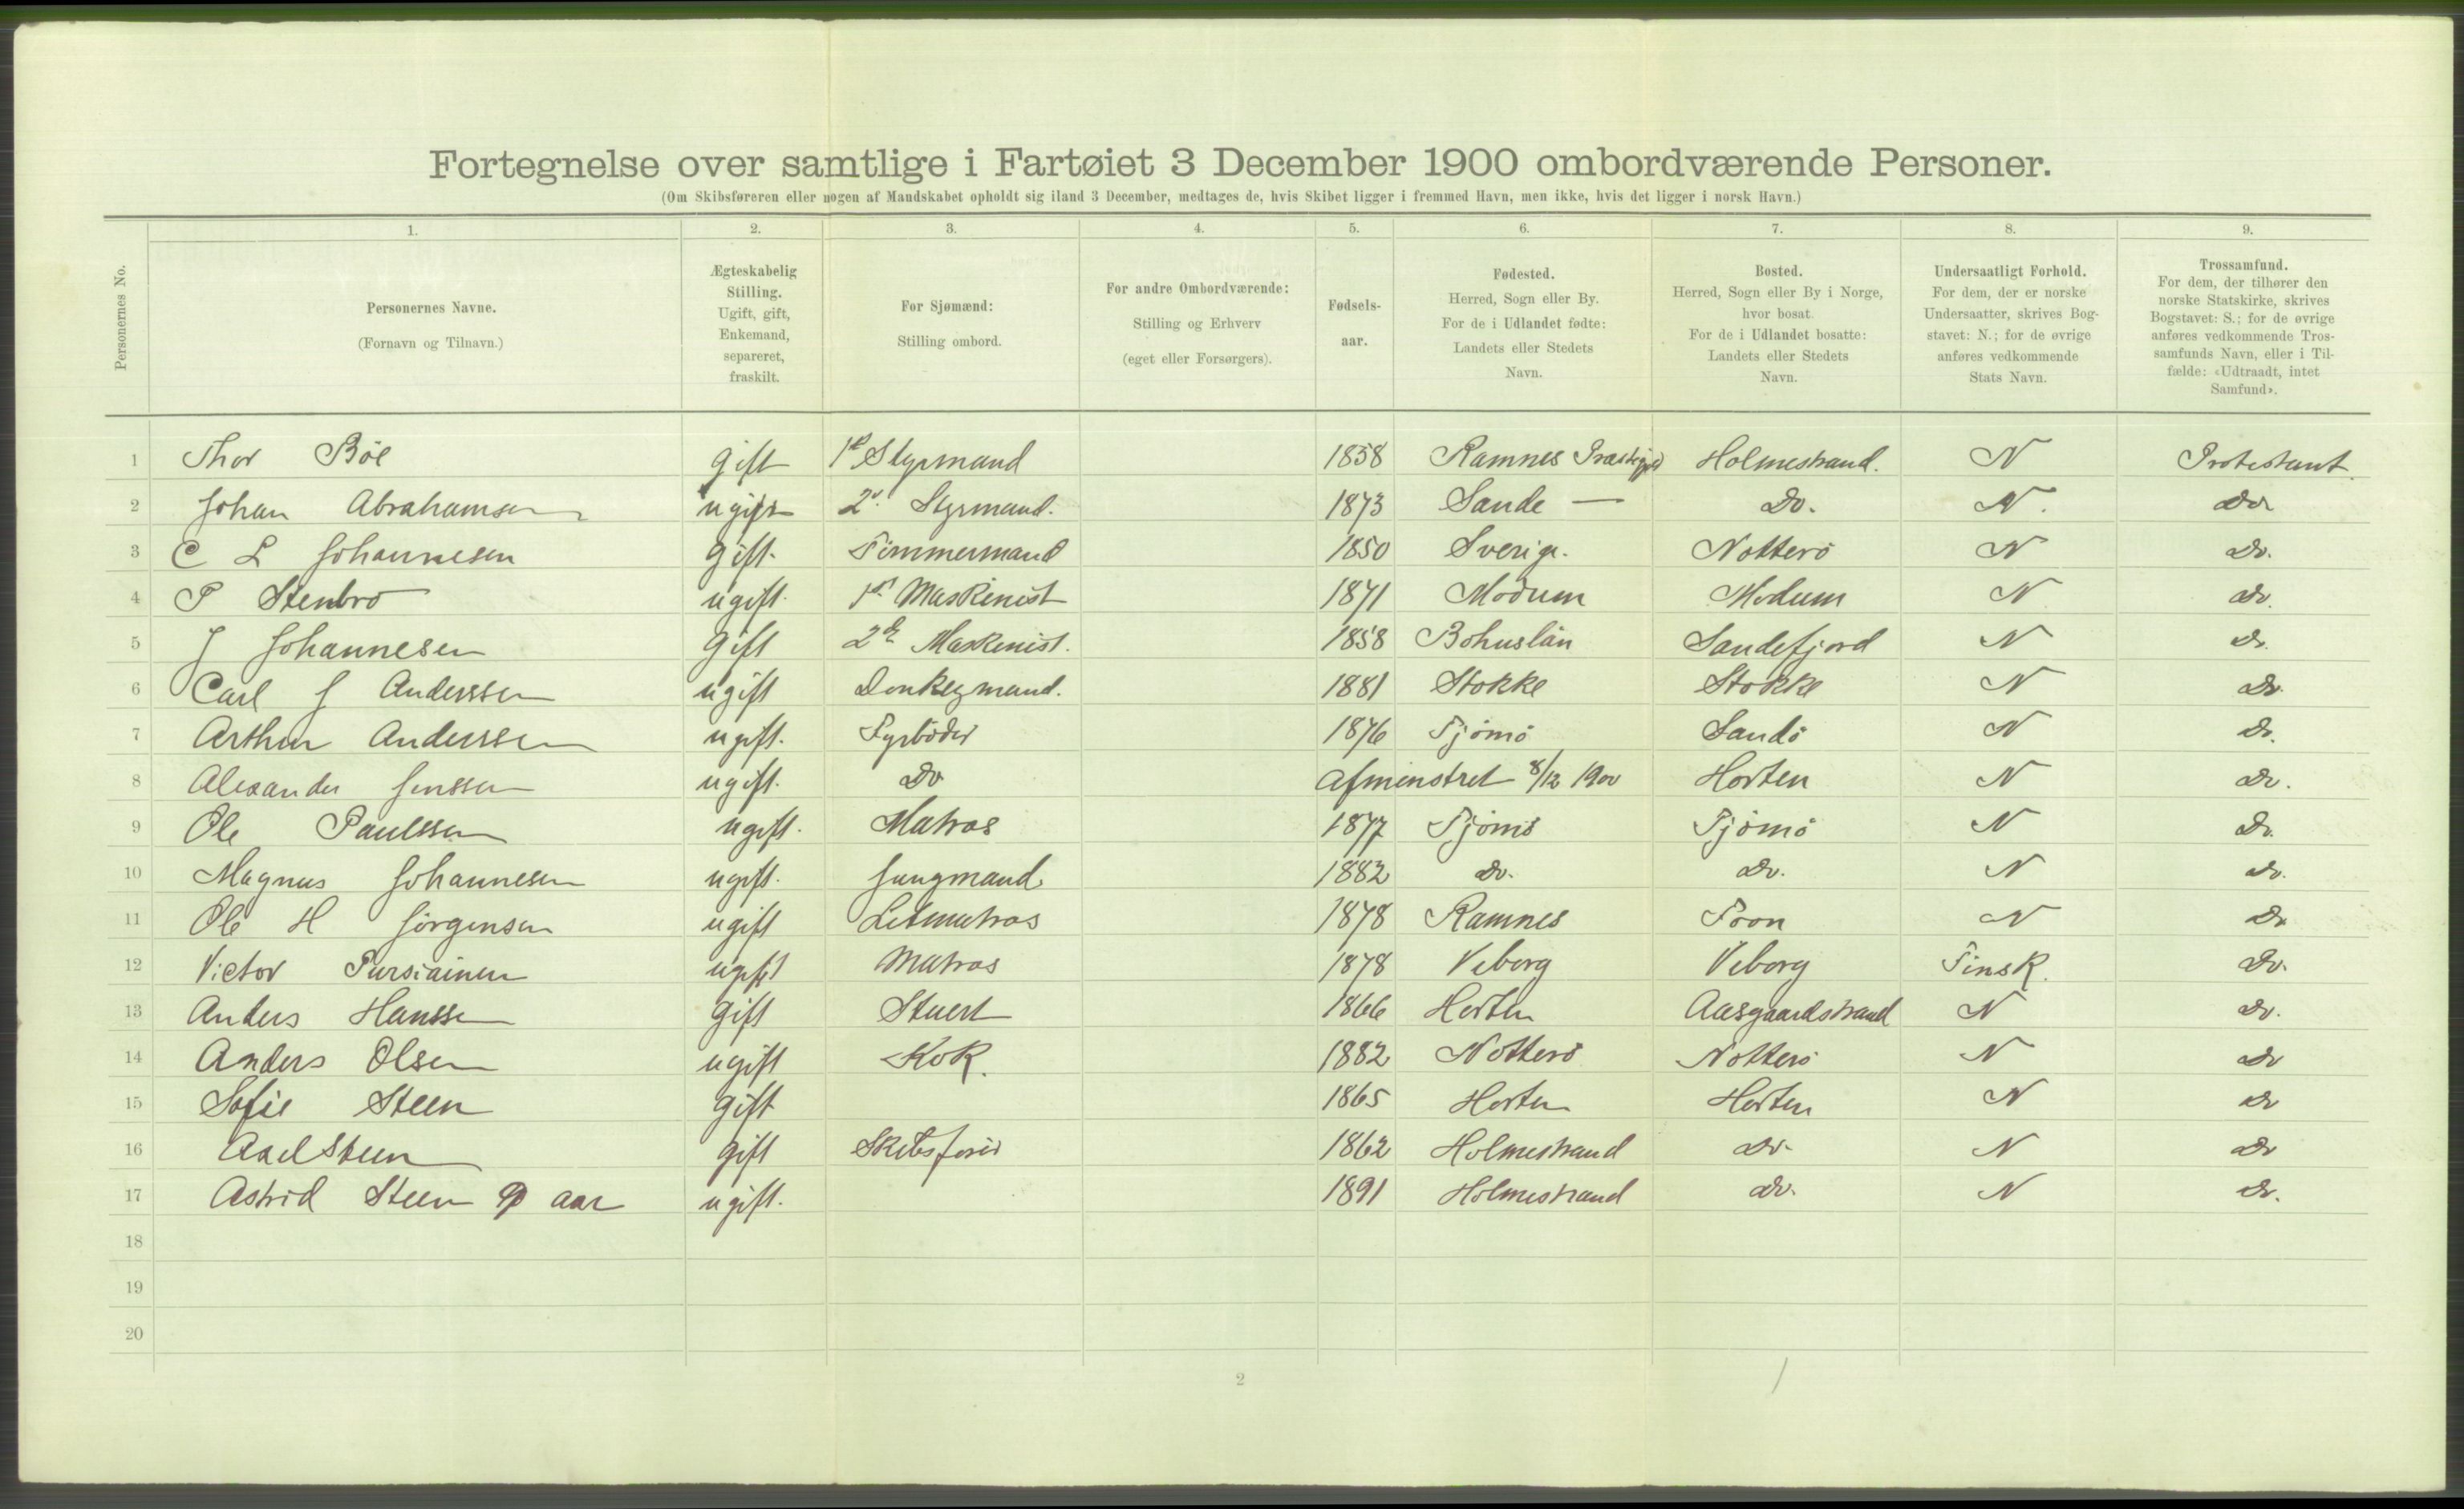 Fortegnelse over samtlige i Fartøiet 3 December 1900 ombordværende Personer.
(Om Skibsføreren eller nogen af Mandskabet opholdt sig iland 3 December, medtages de, hvis Skibet ligger i fremmed Havn, men ikke, hvis det ligger i norsk Havn.)
Personernes No.
1. 2. 3. 4. 5. 6. 7. 8. 9.
Personernes Navne.
(Fornavn og Tilnavn.)
Ægteskabelig
Stilling.
Ugift, gift,
Enkemand,
separeret,
fraskilt.
For Sjømænd:
Stilling ombord.
For andre Ombordværende:
Stilling og Erhverv
(eget eller Forsørgers).
Fødsels-
aar.
Fødested.
Herred, Sogn eller By.
For de i Udlandet fødte:
Landets eller Stedets
Navn.
Bosted.
Herred, Sogn eller By i Norge,
hvor bosat.
For de i Udlandet bosatte:
Landets eller Stedets
Navn.
Undersaatligt Forhold.
For dem, der er norske
Undersaatter, skrives Bog-
stavet: N.; for de øvrige
anføres vedkommende
Stats Navn.
Trossamfund.
For dem, der tilhører den
norske Statskirke, skrives
Bogstavet: S.; for de øvrige
anføres vedkommende Tros-
samfunds Navn, eller i Til-
fælde: «Udtraadt, intet
Samfund».
1 Thor Böe gift 1st Styrmand 1858 Ramnes Præstegjeld Holmestrand. N Protestant
2 Johan Abrahamsen ugift 2. Styrmand. 1873 Sande — Do. N. Do
3 C L Johannesen gift. Timmermand 1850 Sverige. Nötterö N Do.
4 P Stenbro ugift. 1st Maskinist 1871 Modum Modum N Do.
5 J Johannesen gift 2de Maskinist. 1858 Bohuslän Sandefjord N Do.
6 Carl J Anderssen ugift Donkeymand. 1881 Stokke Stokke N Do.
7 Arthur Anderssen ugift. Fyrböder 1876 Tjömö Sandö N Do.
8 Alexander Jenssen ugift. Do Afmönstret 8/12 1900 Horten N Do.
9 Ole Paulssen ugift. Matros 1877 Tjömö Tjömö N Do.
10 Magnus Johannesen ugift. Jungmand 1882 Do. Do. N Do.
11 Ole H Jörgensen ugift Letmatros 1878 Ramnes Foon N Do
12 Victor Pursiainen ugift Matros 1878 Viborg Viborg Finsk. Do.
13 Anders Hanssen gift Stuert 1866 Horten Aasgaardstrand N Do.
14 Anders Olsen ugift Kok. 1882 Nötterö Nötterö N Do
15 Sofie Steen gift 1865 Horten Horten N Do
16 Axel Steen gift Skibsförer 1862 Holmestrand Do. N Do
17 Astrid Steen 9 aar ugift. 1891 Holmestrand Do. N Do.
18
19
20
2